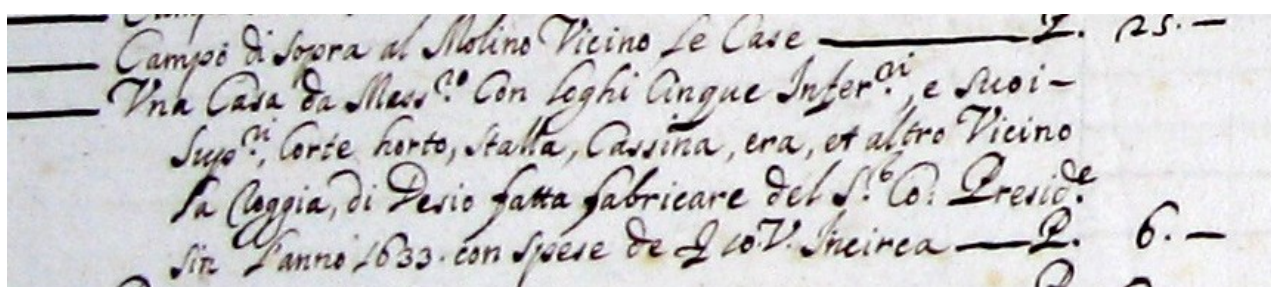 Campo di sopra al Molino Vicino le Case — P. 25. —
Vna Casa da Mess.ro Con loghi Cinque Infer.ri, e suoi –
Sup.ri, Corte horto, stalla, Cassina, era, et altro Vicino
la loggia, di Desio fatta fabricare del S.r Co: Presid.e
sin l'anno 1633. con spese de Incirca — P. 6. —